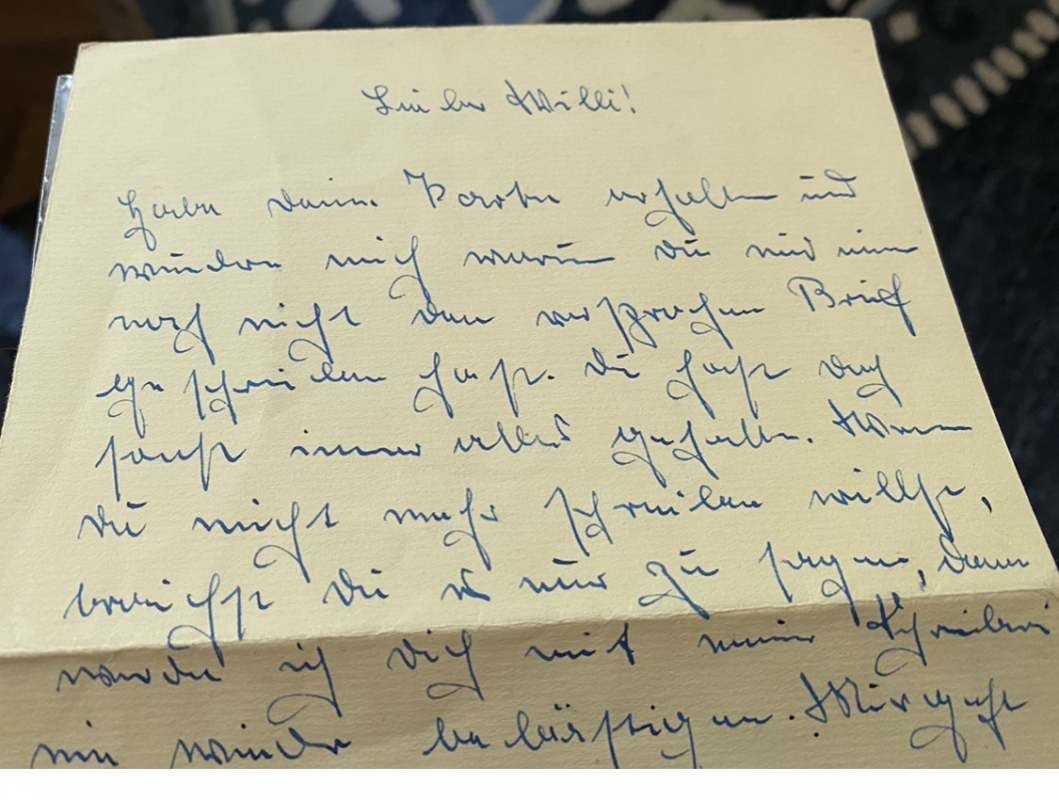 Lieber Willi!
Habe deine Karte erhalten und
wundere mich warum du mir immer
noch nicht den versprochen Brief
geschrieben hast. Du hast doch
sonst immer alles gehalten. Wenn
du nicht mehr schreiben willst,
brauchst du es nur zu sagen, dann
werde ich dich mit meiner Schreiberei
nie wieder belästigen. Mir geht